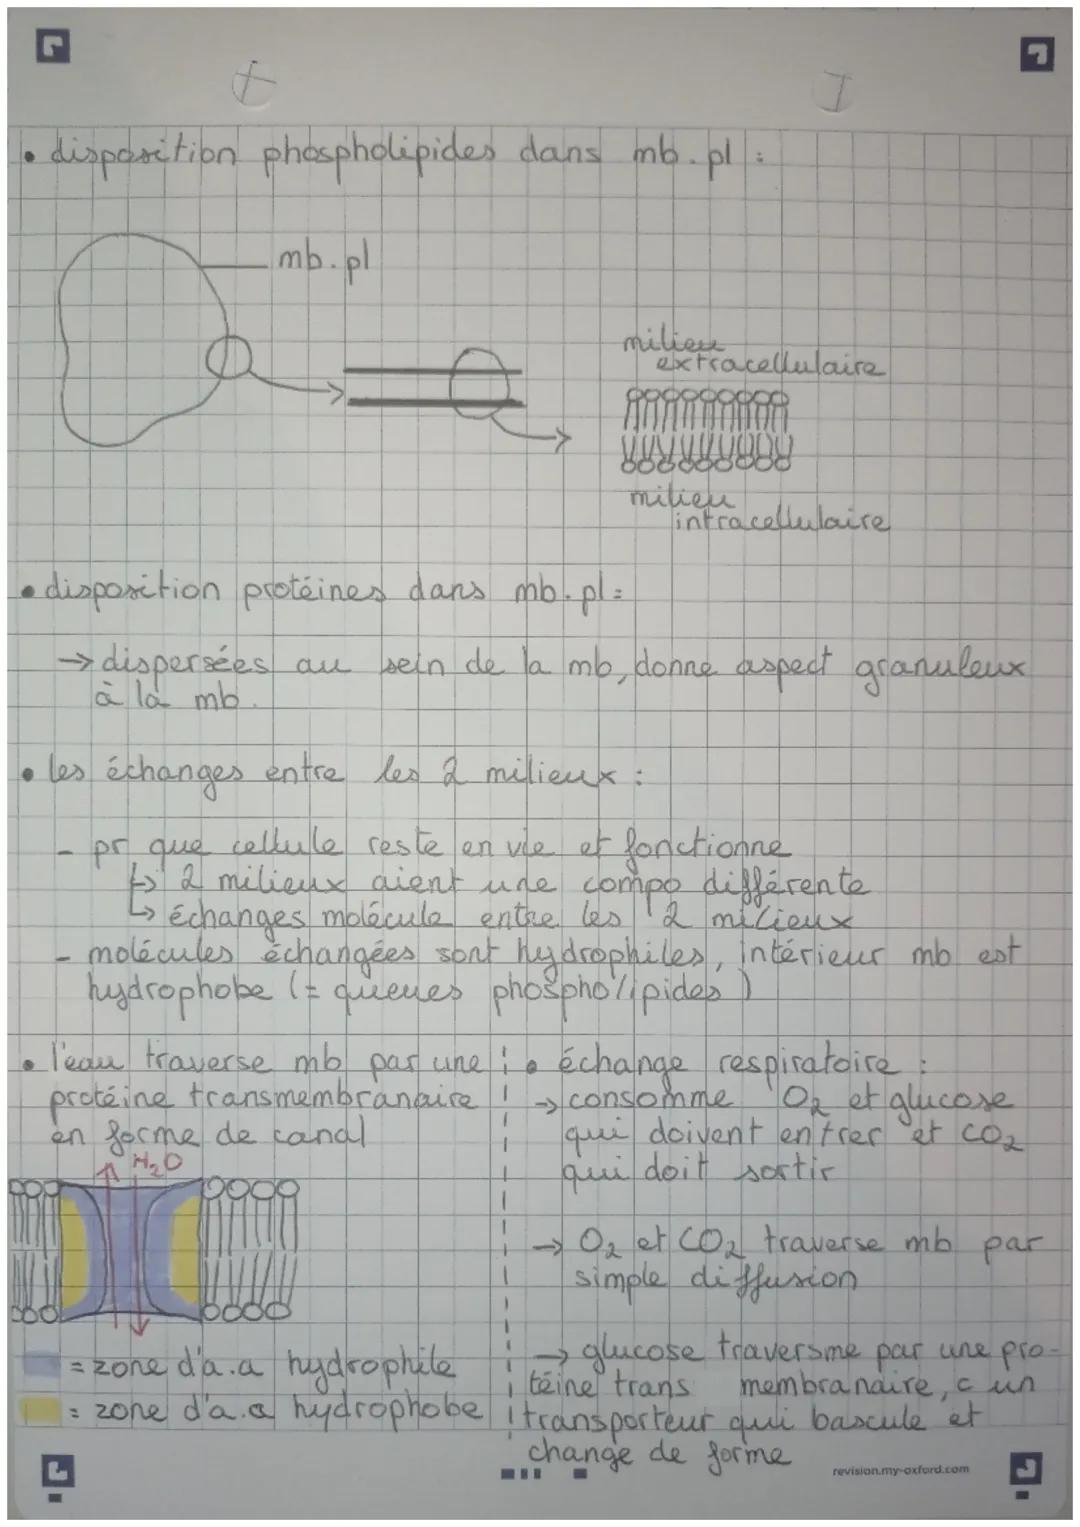 • disposition phospholipides dans mb.pl :
mb.pl
milieu
extracellulaire
milieu
intracellulaire
• disposition protéines dans mb.pl :
→ dispersées au sein de la mb, donne aspect granuleux
à la mb.
• les échanges entre les 2 milieux :
- pr que cellule reste en vie et fonctionne
↳ 2 milieux aient une compo différente
↳ échanges molécule entre les 2 milieux
- molécules échangées sont hydrophiles, intérieur mb est
hydrophobe (= queues phospholipides)
• l'eau traverse mb par une
protéine transmembranaire
en forme de canal
H₂O
= zone d'a.a hydrophile
= zone d'a.a hydrophobe
• échange respiratoire :
→ consomme O₂ et glucose
qui doivent entrer et CO₂
qui doit sortir
→ O₂ et CO₂ traverse mb par
simple diffusion
→ glucose traversme par une pro-
téine trans membranaire, c un
transporteur qui bascule et
change de forme
revision.my-oxford.com